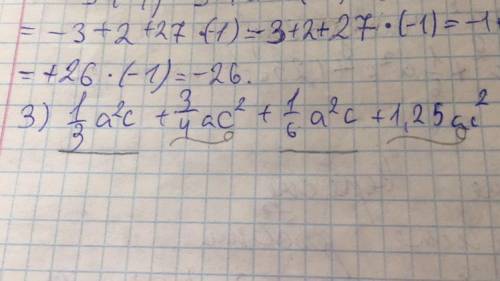 = -3 + 2 + 27 · (-1) = -3 + 2 + 27 · (-1) = -1
= +26 · (-1) = -26.
3) 1/3 a²c + 3/4 ac² + 1/6 a²c + 1,25 ac²